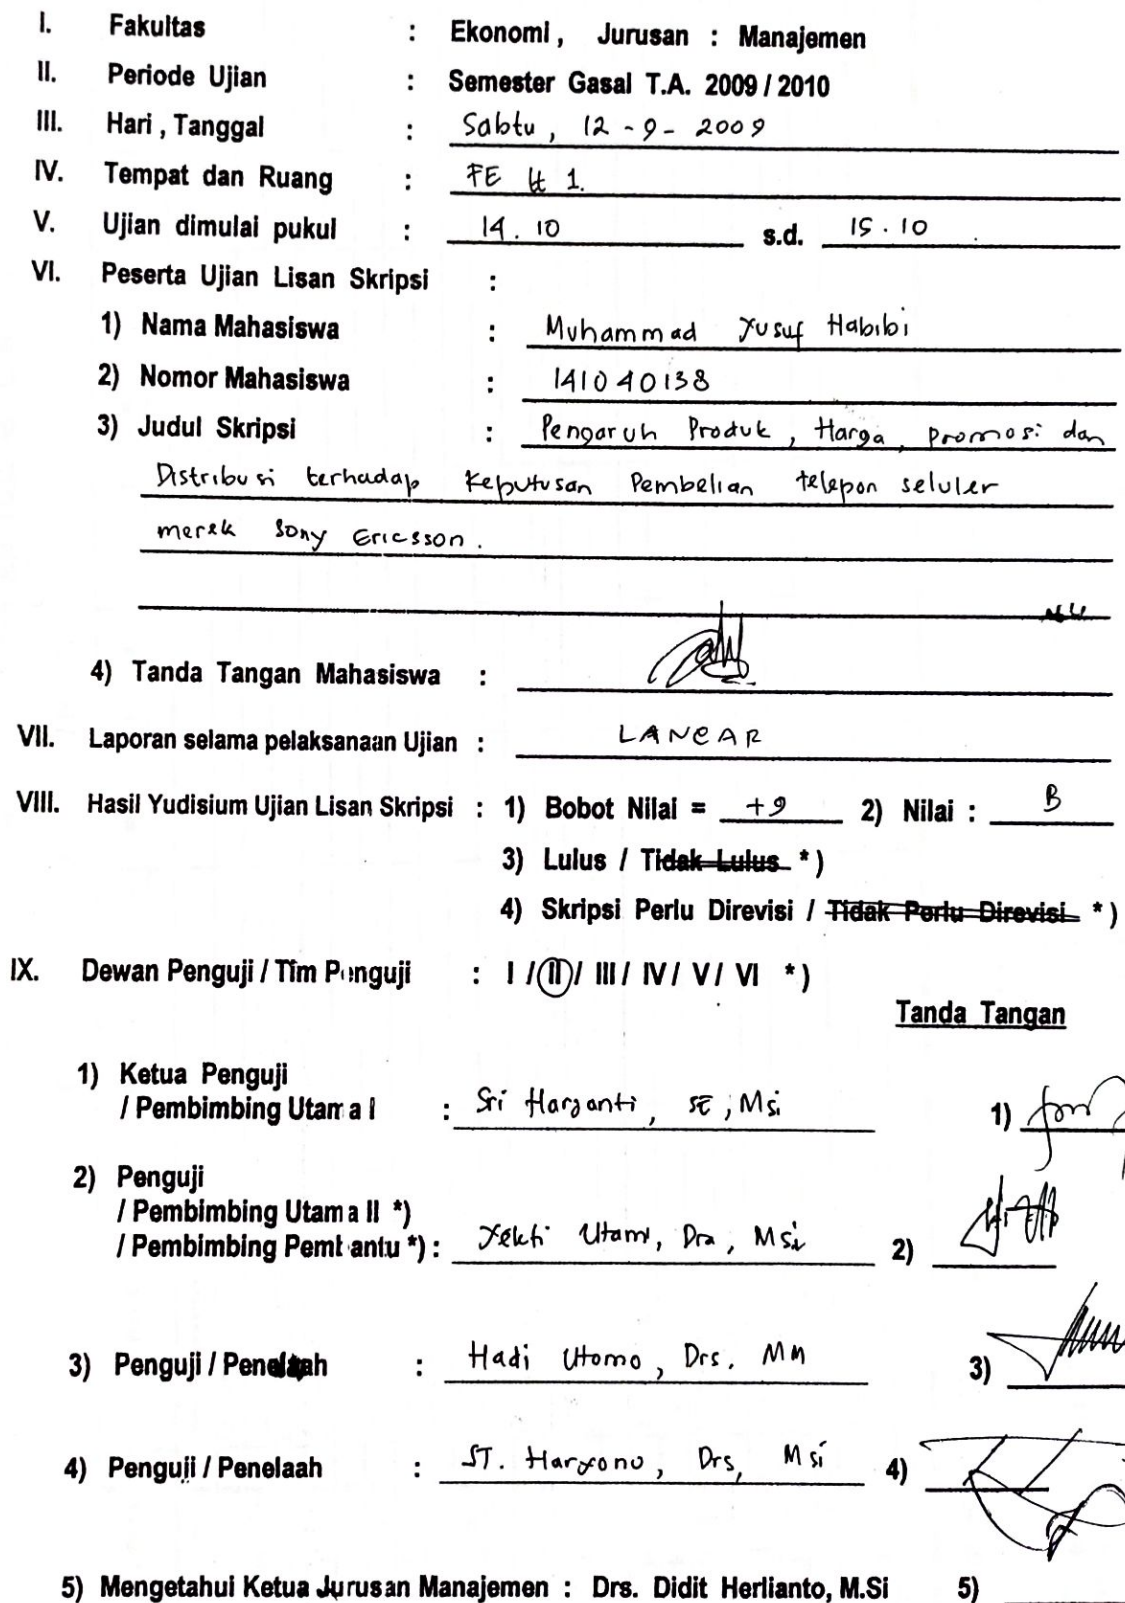 I. Fakultas : Ekonomi, Jurusan : Manajemen
II. Periode Ujian : Semester Gasal T.A. 2009 / 2010
III. Hari, Tanggal : Sabtu, 12 - 9 - 2009
IV. Tempat dan Ruang : FE lt 1.
V. Ujian dimulai pukul : 14.10 s.d. 15.10
VI. Peserta Ujian Lisan Skripsi :
1) Nama Mahasiswa : Muhammad Yusuf Habibi
2) Nomor Mahasiswa : 141040138
3) Judul Skripsi : Pengaruh Produk, Harga, promosi dan
Distribusi terhadap Keputusan Pembelian telepon seluler
merek Sony Ericsson.
4) Tanda Tangan Mahasiswa :
VII. Laporan selama pelaksanaan Ujian : LANCAR
VIII. Hasil Yudisium Ujian Lisan Skripsi : 1) Bobot Nilai = +9 2) Nilai : B
3) Lulus / Tidak Lulus *)
4) Skripsi Perlu Direvisi / Tidak Perlu Direvisi *)
IX. Dewan Penguji / Tim Penguji : I / II / III / IV / V / VI *)
Tanda Tangan
1) Ketua Penguji
/ Pembimbing Utama I : Sri Haryanti, SE, Msi 1)
2) Penguji
/ Pembimbing Utama II *)
/ Pembimbing Pembantu *) : Yekti Utami, Dra, Msi 2)
3) Penguji / Penelaah : Hadi Utomo, Drs. MM 3)
4) Penguji / Penelaah : ST. Haryono, Drs, Msi 4)
5) Mengetahui Ketua Jurusan Manajemen : Drs. Didit Herlianto, M.Si 5)